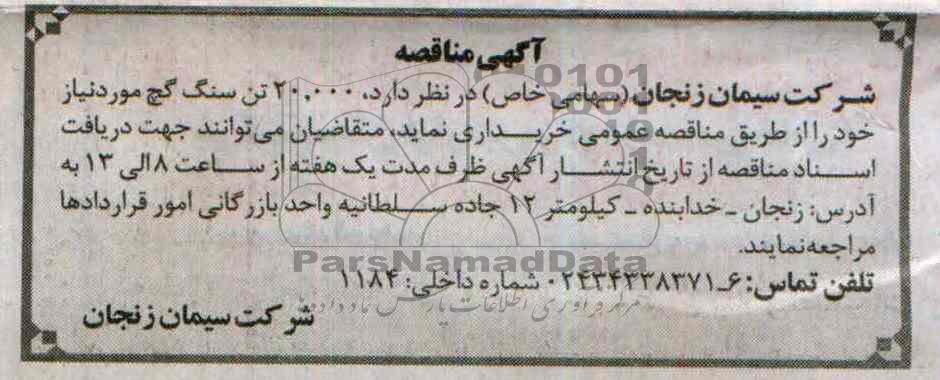 آگهی مناقصه
شرکت سیمان زنجان (سهامی خاص) در نظر دارد، ۲۰,۰۰۰ تن سنگ گچ موردنیاز
خود را از طریق مناقصه عمومی خریداری نماید، متقاضیان می‌توانند جهت دریافت
اسناد مناقصه از تاریخ انتشار آگهی ظرف مدت یک هفته از ساعت ۸ الی ۱۳ به
آدرس: زنجان - خدابنده - کیلومتر ۱۲ جاده سلطانیه واحد بازرگانی امور قراردادها
مراجعه نمایند.
ParsNamadData
تلفن تماس: ۶-۰۲۴۳۴۳۳۸۳۷۱ شماره داخلی: ۱۱۸۴
شرکت سیمان زنجان